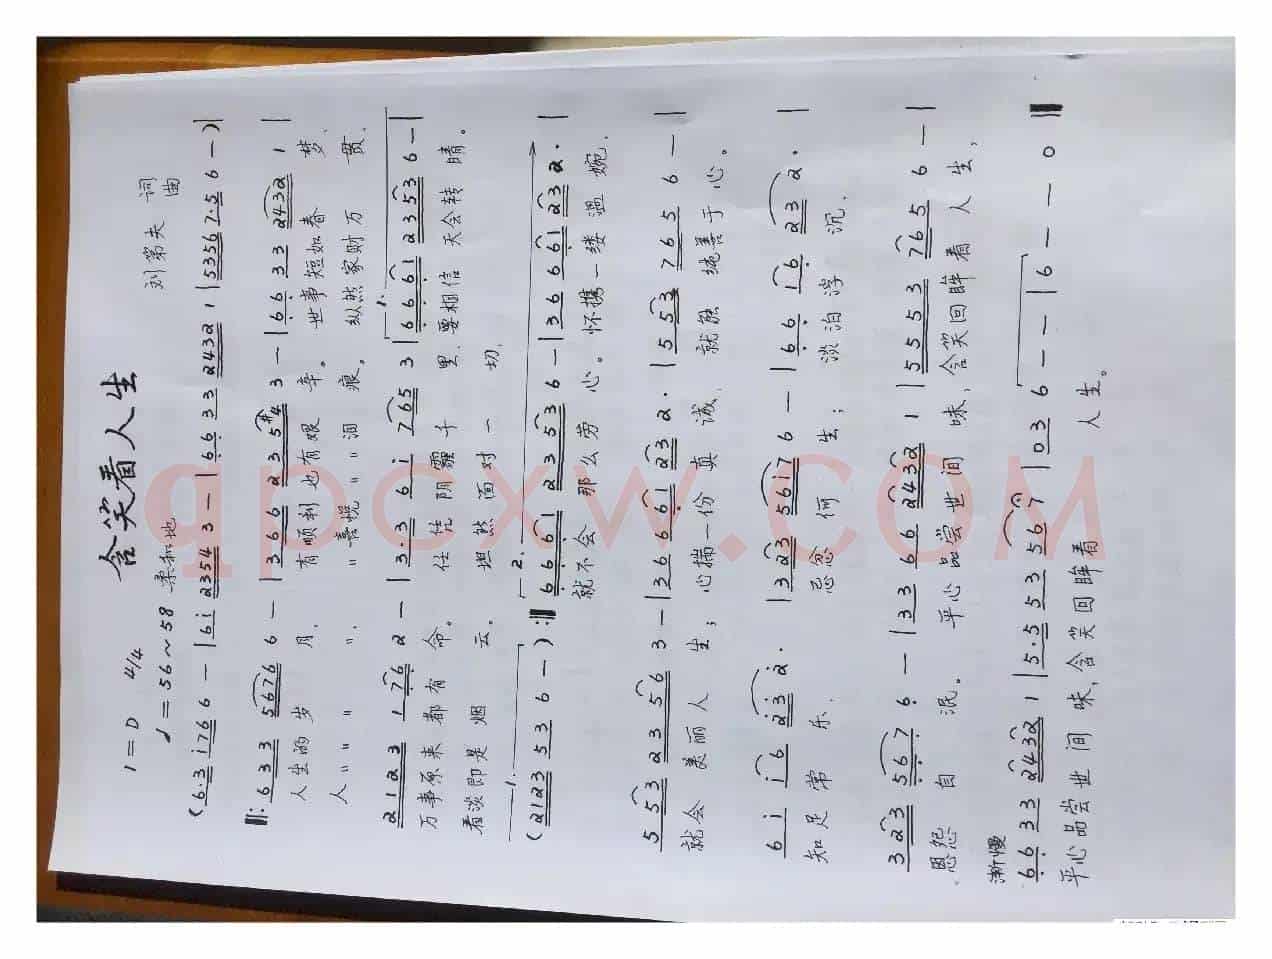 含笑看人生
1=D 4/4
♩=56~58 柔和地
刘第夫 词曲
(6·3 i766 - |6i 2354 3 - |66 33 2432 1 |5356 7·5 6 - )|
‖:6 33 5676 6 - |3 66 2 35#4 3 - |66 33 2432 1 |
人生的岁月, 有顺利也有艰辛。 世事短如春梦,
人〃〃〃〃, 〃喜悦〃〃泪痕。 纵然家财万贯,
2123 176 2 - |3·3 6i 765 3 |6661 2353 6 - |
万事原来都有命。 任凭阴霾千里, 要相信天会转晴。
看淡即是烟云。 坦然面对一切,
1.
(2123 53 6 - ):‖
2.
6661 2353 6 - |36 661 23 2· |
就不会那么劳心。 怀携一缕温婉,
5 53 23 56 3 - |36 661 23 2· |5 53 765 6 - |
就会美丽人生; 心揣一份真诚, 就能纯善于心。
6 i i6 23 2· |323 56i7 6 - |66 i6 23 2· |
知足常乐, 忌忿何生; 淡泊浮沉,
323 567 6 - |33 66 2432 1 |55 553 765 6 - |
恩怨自泯。 平心品尝世间味, 含笑回眸看人生,
渐慢
66 33 2432 1 |5·5 553 567 |03 6 - - |6 - - 0‖
平心品尝世间味, 含笑回眸看人生。
qpcxw.com